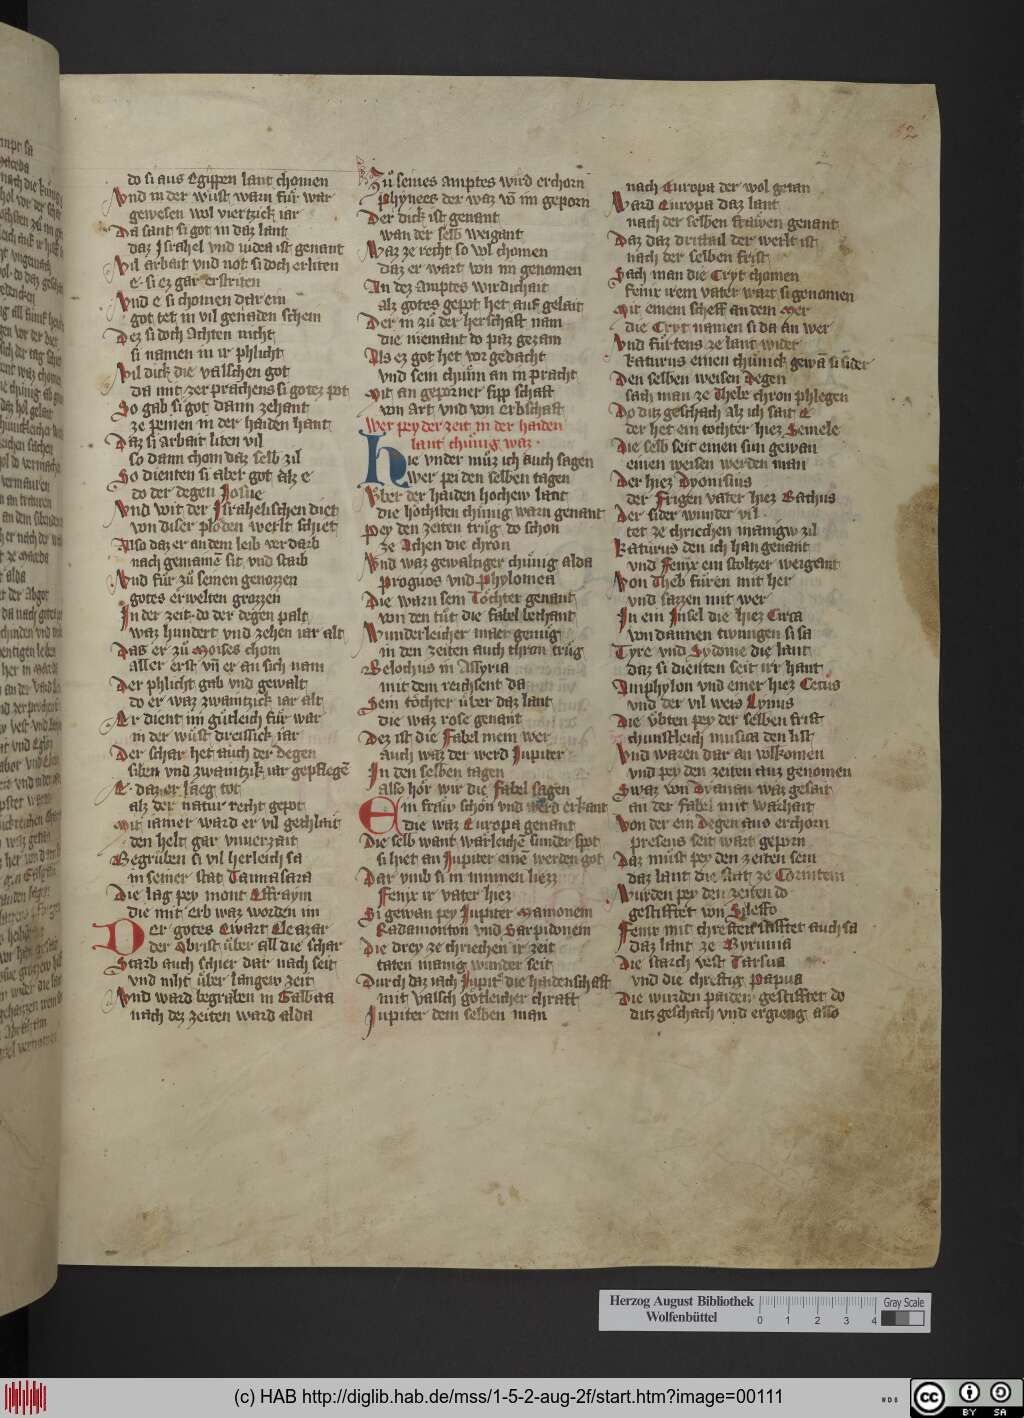 52
do si aus Egippen lant chomen
Vnd in der wust warn für war
gewesen wol viertzick iar
Da sant si got in daz lant
daz Israhel vnd iudea ist genant
Vil arbait vnd not si doch erliten
e si ez gar erstriten
Vnd e si chomen dar ein
got tet in vil genaden schein
Dez si doch Achten nicht
si namen in ir phlicht
Vil dick die valschen got
da mit zerprachens si gotez pot
So gab si got dann zehant
ze peinen in der haiden hant
Daz si arbait liten vil
so dann chom daz selb zil
So dienten si aber got alz e
do der degen Josue
Vnd wit der Israhelischen diet
von diser ploden werlt schiet
Also daz er an dem leib verdarb
nach gemainē sit vnd starb
Vnd für zü seinen genozzen
gotes erwelten grozzen
In der zeit do der degen palt
waz hundert vnd zehen iar alt
Daz er zü Moises chom
aller erst vn̄ er an sich nam
Der phlicht gab vnd gewalt
do er waz zwaintzick iar alt
Er dient im gütleich für war
in der wüst dreissick iar
Der schar het auch der degen
siben vnd zwaintzik iar gepflegē
E daz er laeg tot
alz der natur recht gepot
Mit iamer ward er vil gechlait
den helt gar vnuerzait
Begrüben si vil herleich sa
in seiner stat Tannasara
Die lag pey mont Effraym
die mit erb waz worden im
Der gotes Ewart Eleazar
der Obrist über all die schar
Starb auch schier dar nach seit
vnd niht über langew zeit
Vnd ward begraben in Galbaa
nach dez zeiten ward alda
Zü seines Amptes wird erchorn
Phynees der waz vō im geporn
Der dick ist genant
wan der selb weigant
Waz ze recht so wol chomen
daz er wart von im genomen
In dez Amptes wirdichait
alz gotes gepot het auf gelait
Der in zü der herschaft nam
die niemant do paz gezam
Als ez got het vor gedacht
vnd sein chunn an in pracht
Mit an geporner sipp schaft
von Art vnd von erbschaft
Wer pey der zeit in der haiden
lant chünig waz
Hie vnder müz ich auch sagen
wer pei den selben tagen
Vber der haiden hochew lant
die höchsten chünig warn genant
Pey den zeiten trüg do schon
ze Achen die chron
Vnd waz gewaltiger chünig alda
Prognos vnd Phylomea
Die warn sein Töchter genant
von den tüt die fabel bechant
Wunderleicher maer genüg
in den zeiten auch chron trüg
Belochus in Assyria
mit dem reichsent da
Sein töchter über daz lant
die waz rose genant
Dez ist die Fabel mein wer
auch waz der werd Jupiter
In den selben tagen
also hör wir die fabel sagen
Ein fraw schön vnd werd erkant
die waz Europa genant
Die selb want warleichē sunder spot
si het an Jupiter einē werden got
Dar vmb si in minnen liezz
Fenix ir vater hiez
Si gewan pey Jupiter Mamonem
Radamonton vnd Sarpidonem
Die drey ze chriechen ir zeit
taten manig wunder seit
Durch daz iach Jupit' die haidenschaft
mit valsch gotleicher chraft
Jupiter dem selben man
nach Europa der wol getan
Ward Europa daz lant
nach der selben frawen genant
Daz daz drittail der werlt ist
nach der selben frist
Sach man die Cryt chomen
Fenix irem vater wart si genomen
Mit einem scheff an dem Mer
die Cryt namen si da an wer
Vnd fürtens ze lant wider
Katurus einen chünick gewā si sider
Den selben weisen Degen
sach man ze Thebe chron phlegen
Do ditz geschach alz ich sait e
der het ein tochter hiez Semele
Die selb seit einen sun gewan
einen weisen werden man
Der hiez Dyonisius
der Frigen vater hiez Bachus
Der sider wunder vil
tet ze chriechen manigw zil
Katurus den ich han genant
vnd Fenix ein stoltzer weigant
Von Theb füren mit her
vnd sazzen mit wer
In ein Insel die hiez Circa
von dannen twungen si sa
Tyre vnd Sydonie die lant
daz si dienten seit ir hant
Amphylon vnd einer hiez Cetus
vnd der vil weis Lynus
Die übten pey der selben frist
chunstleich musica den list
Vnd waren dar an volkomen
vnd pey den zeiten auz genomen
Swaz von Dyanan waz gesait
an der fabel mit warhait
Von der ein Degen aus erchorn
perseus seit wart geporn
Daz müst pey den zeiten sein
daz lant die stat ze Corintem
Wurden pey den zeiten do
gestifftet von Syleffo
Fenix mit chreften stifftet auch sa
daz lant ze Byrinna
Die starch vest Tarsua
vnd die chreftig Papua
Die wurden paiden gestifftet do
ditz geschach vnd ergieng also
Herzog August Bibliothek
Wolfenbüttel
0 1 2 3 4
Gray Scale
(c) HAB http://diglib.hab.de/mss/1-5-2-aug-2f/start.htm?image=00111
WDB
cc BY SA